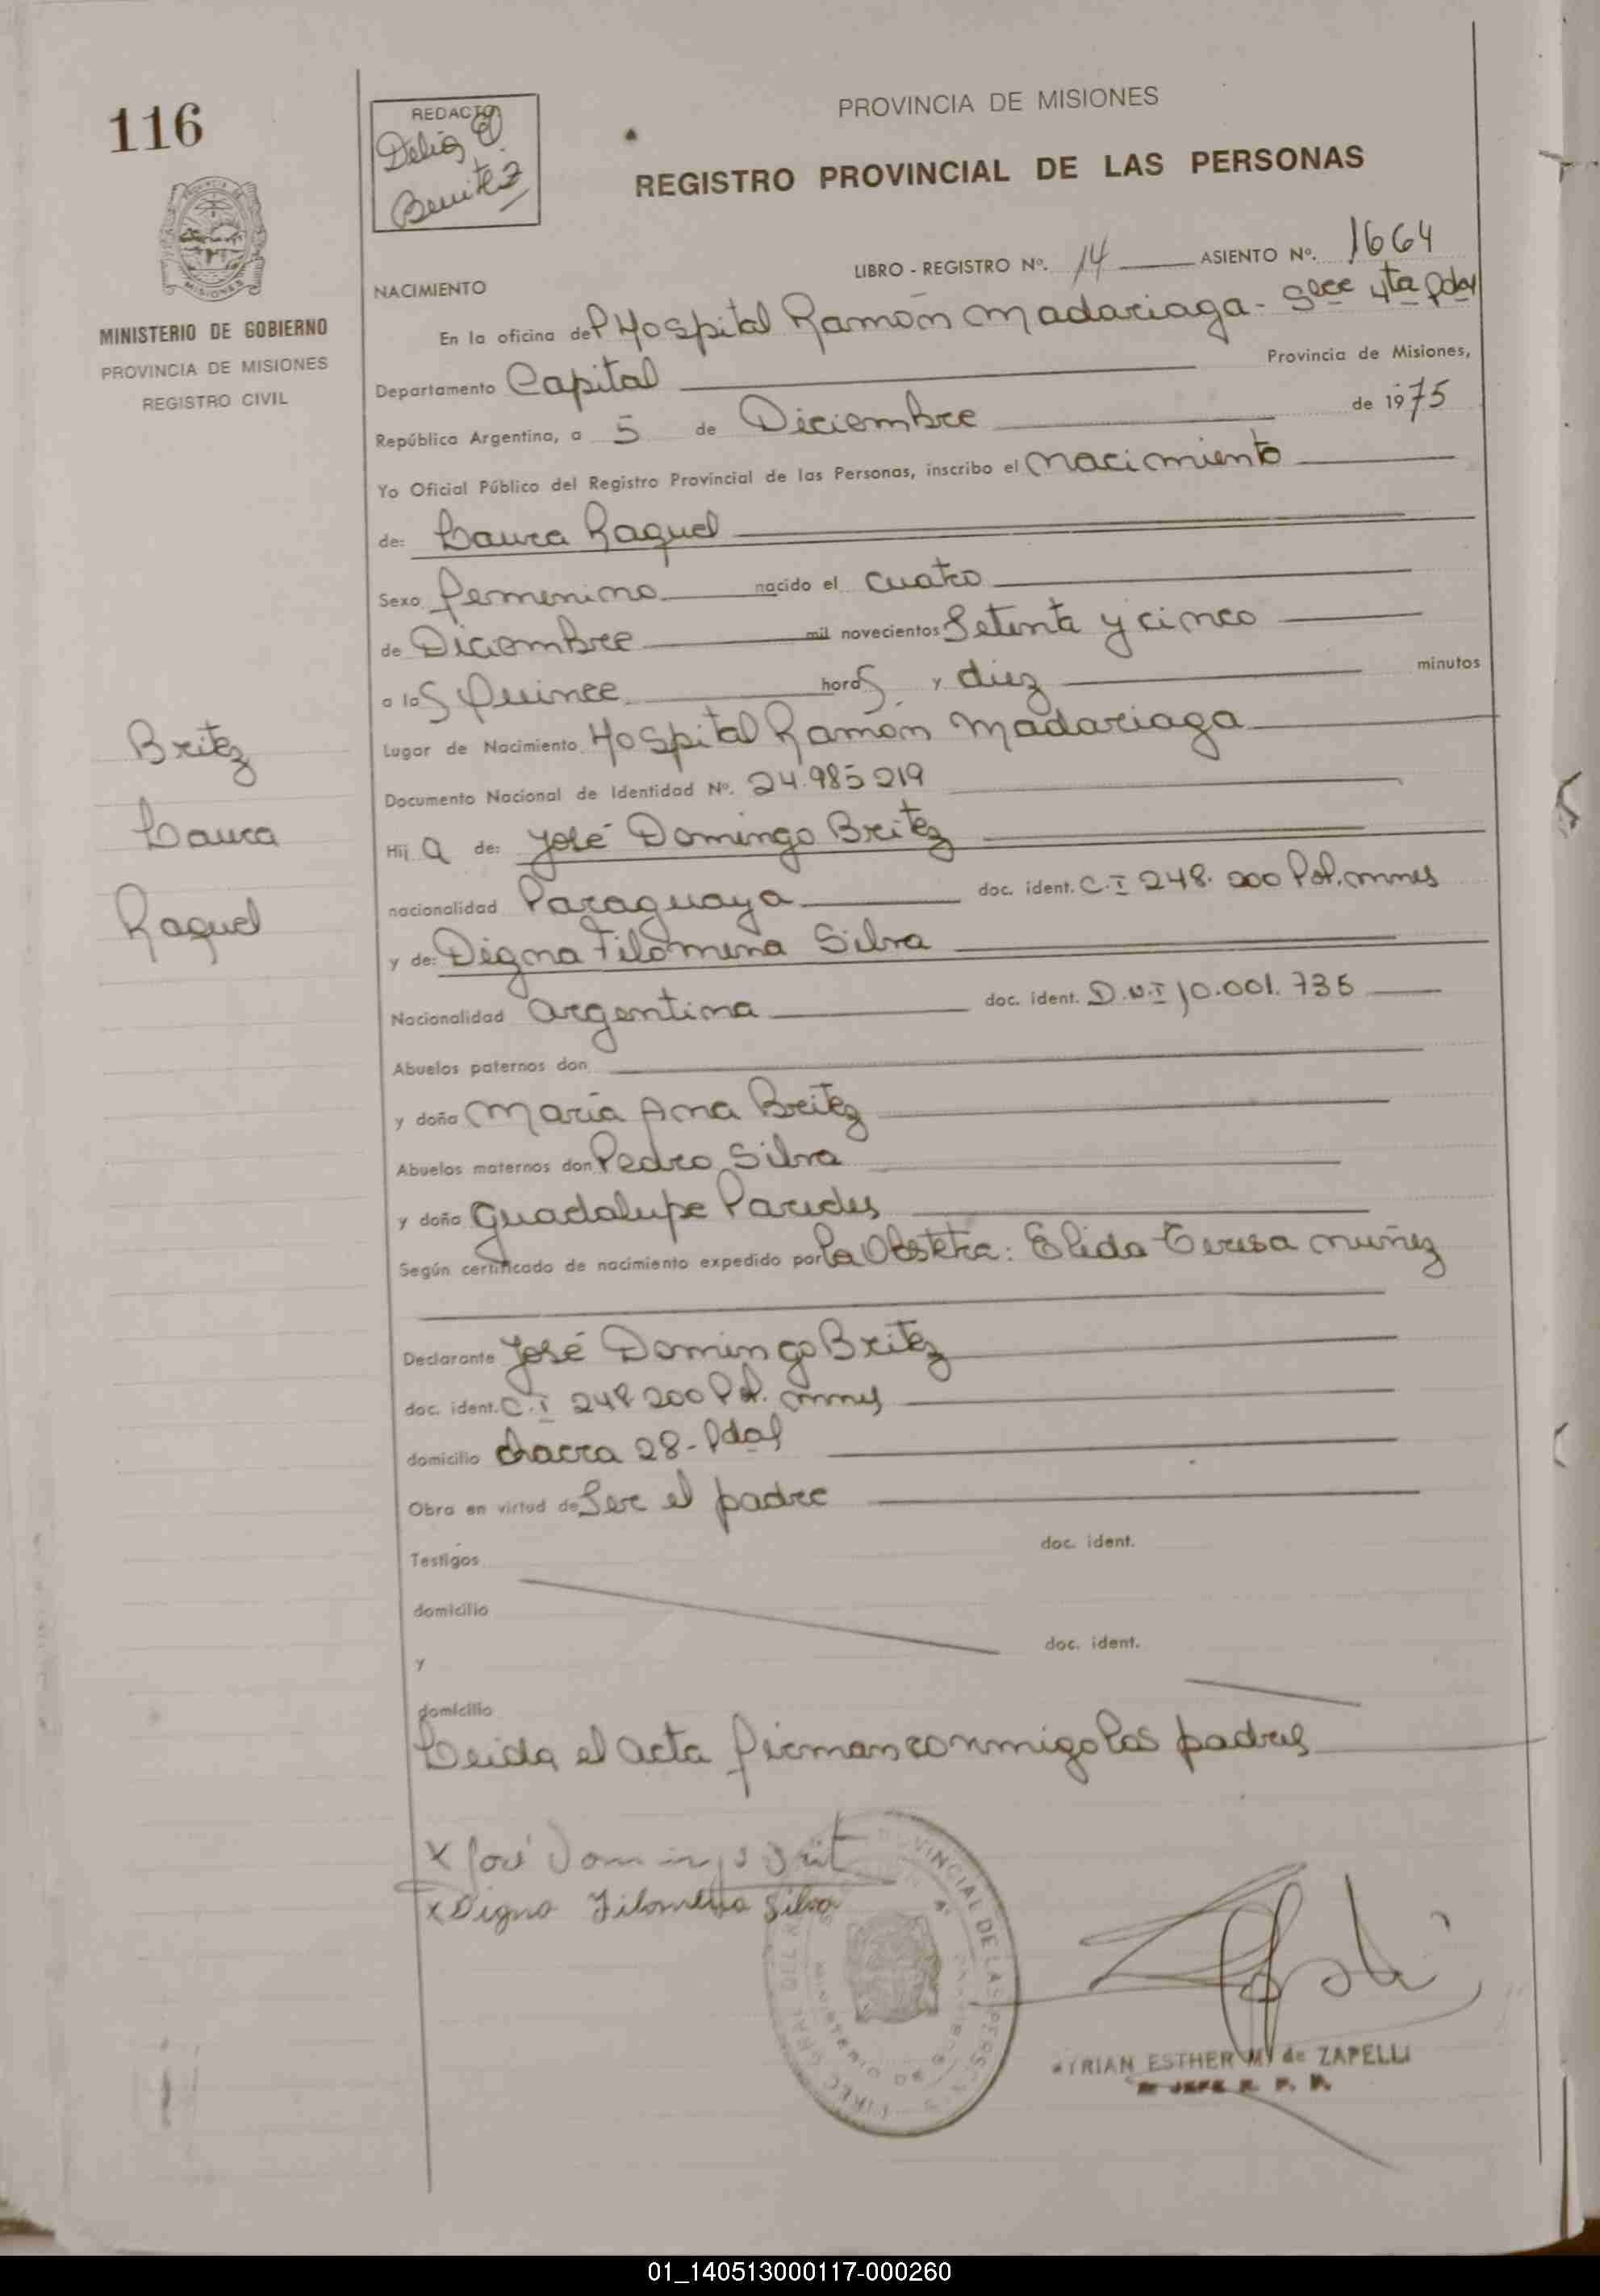 116
REDACTO
Delia E
Benitez
PROVINCIA DE MISIONES
REGISTRO PROVINCIAL DE LAS PERSONAS
MISIONES
MINISTERIO DE GOBIERNO
PROVINCIA DE MISIONES
REGISTRO CIVIL
LIBRO - REGISTRO Nº. 14 ASIENTO Nº. 1664
NACIMIENTO
En la oficina del Hospital Ramón Madariaga - Secc 4ta Pdas
Departamento Capital Provincia de Misiones,
República Argentina, a 5 de Diciembre de 1975
Yo Oficial Público del Registro Provincial de las Personas, inscribo el nacimiento
de: Laura Raquel
Sexo femenino nacido el cuatro
de Diciembre mil novecientos Setenta y cinco
a las quince horas y diez minutos
Lugar de Nacimiento Hospital Ramón Madariaga
Documento Nacional de Identidad Nº. 24.985219
Hij a de: José Domingo Britez
nacionalidad Paraguaya doc. ident. C.I 248. 200 Pol. mnes
y de: Digna Filomena Silva
Nacionalidad argentina doc. ident. D.N.I 10.001.735
Abuelos paternos don
y doña María Ana Britez
Abuelos maternos don Pedro Silva
y doña Guadalupe Paredes
Según certificado de nacimiento expedido por la Obstetra: Elida Teresa Nuñez
Declarante José Domingo Britez
doc. ident. C.I 248 200 Pol. mnes
domicilio chacra 28 - Pdas
Obra en virtud de Ser el padre
Testigos doc. ident.
domicilio
y doc. ident.
domicilio
Leida el acta firman conmigo los padres
Britez
Laura
Raquel
x José Domingo Brit
x Digna Filomena Silva
PROVINCIAL DE LAS PERSONAS
MINISTERIO DE GOBIERNO
ESTHER M. de ZAPELLI
JEFE R. P. P.
01_140513000117-000260